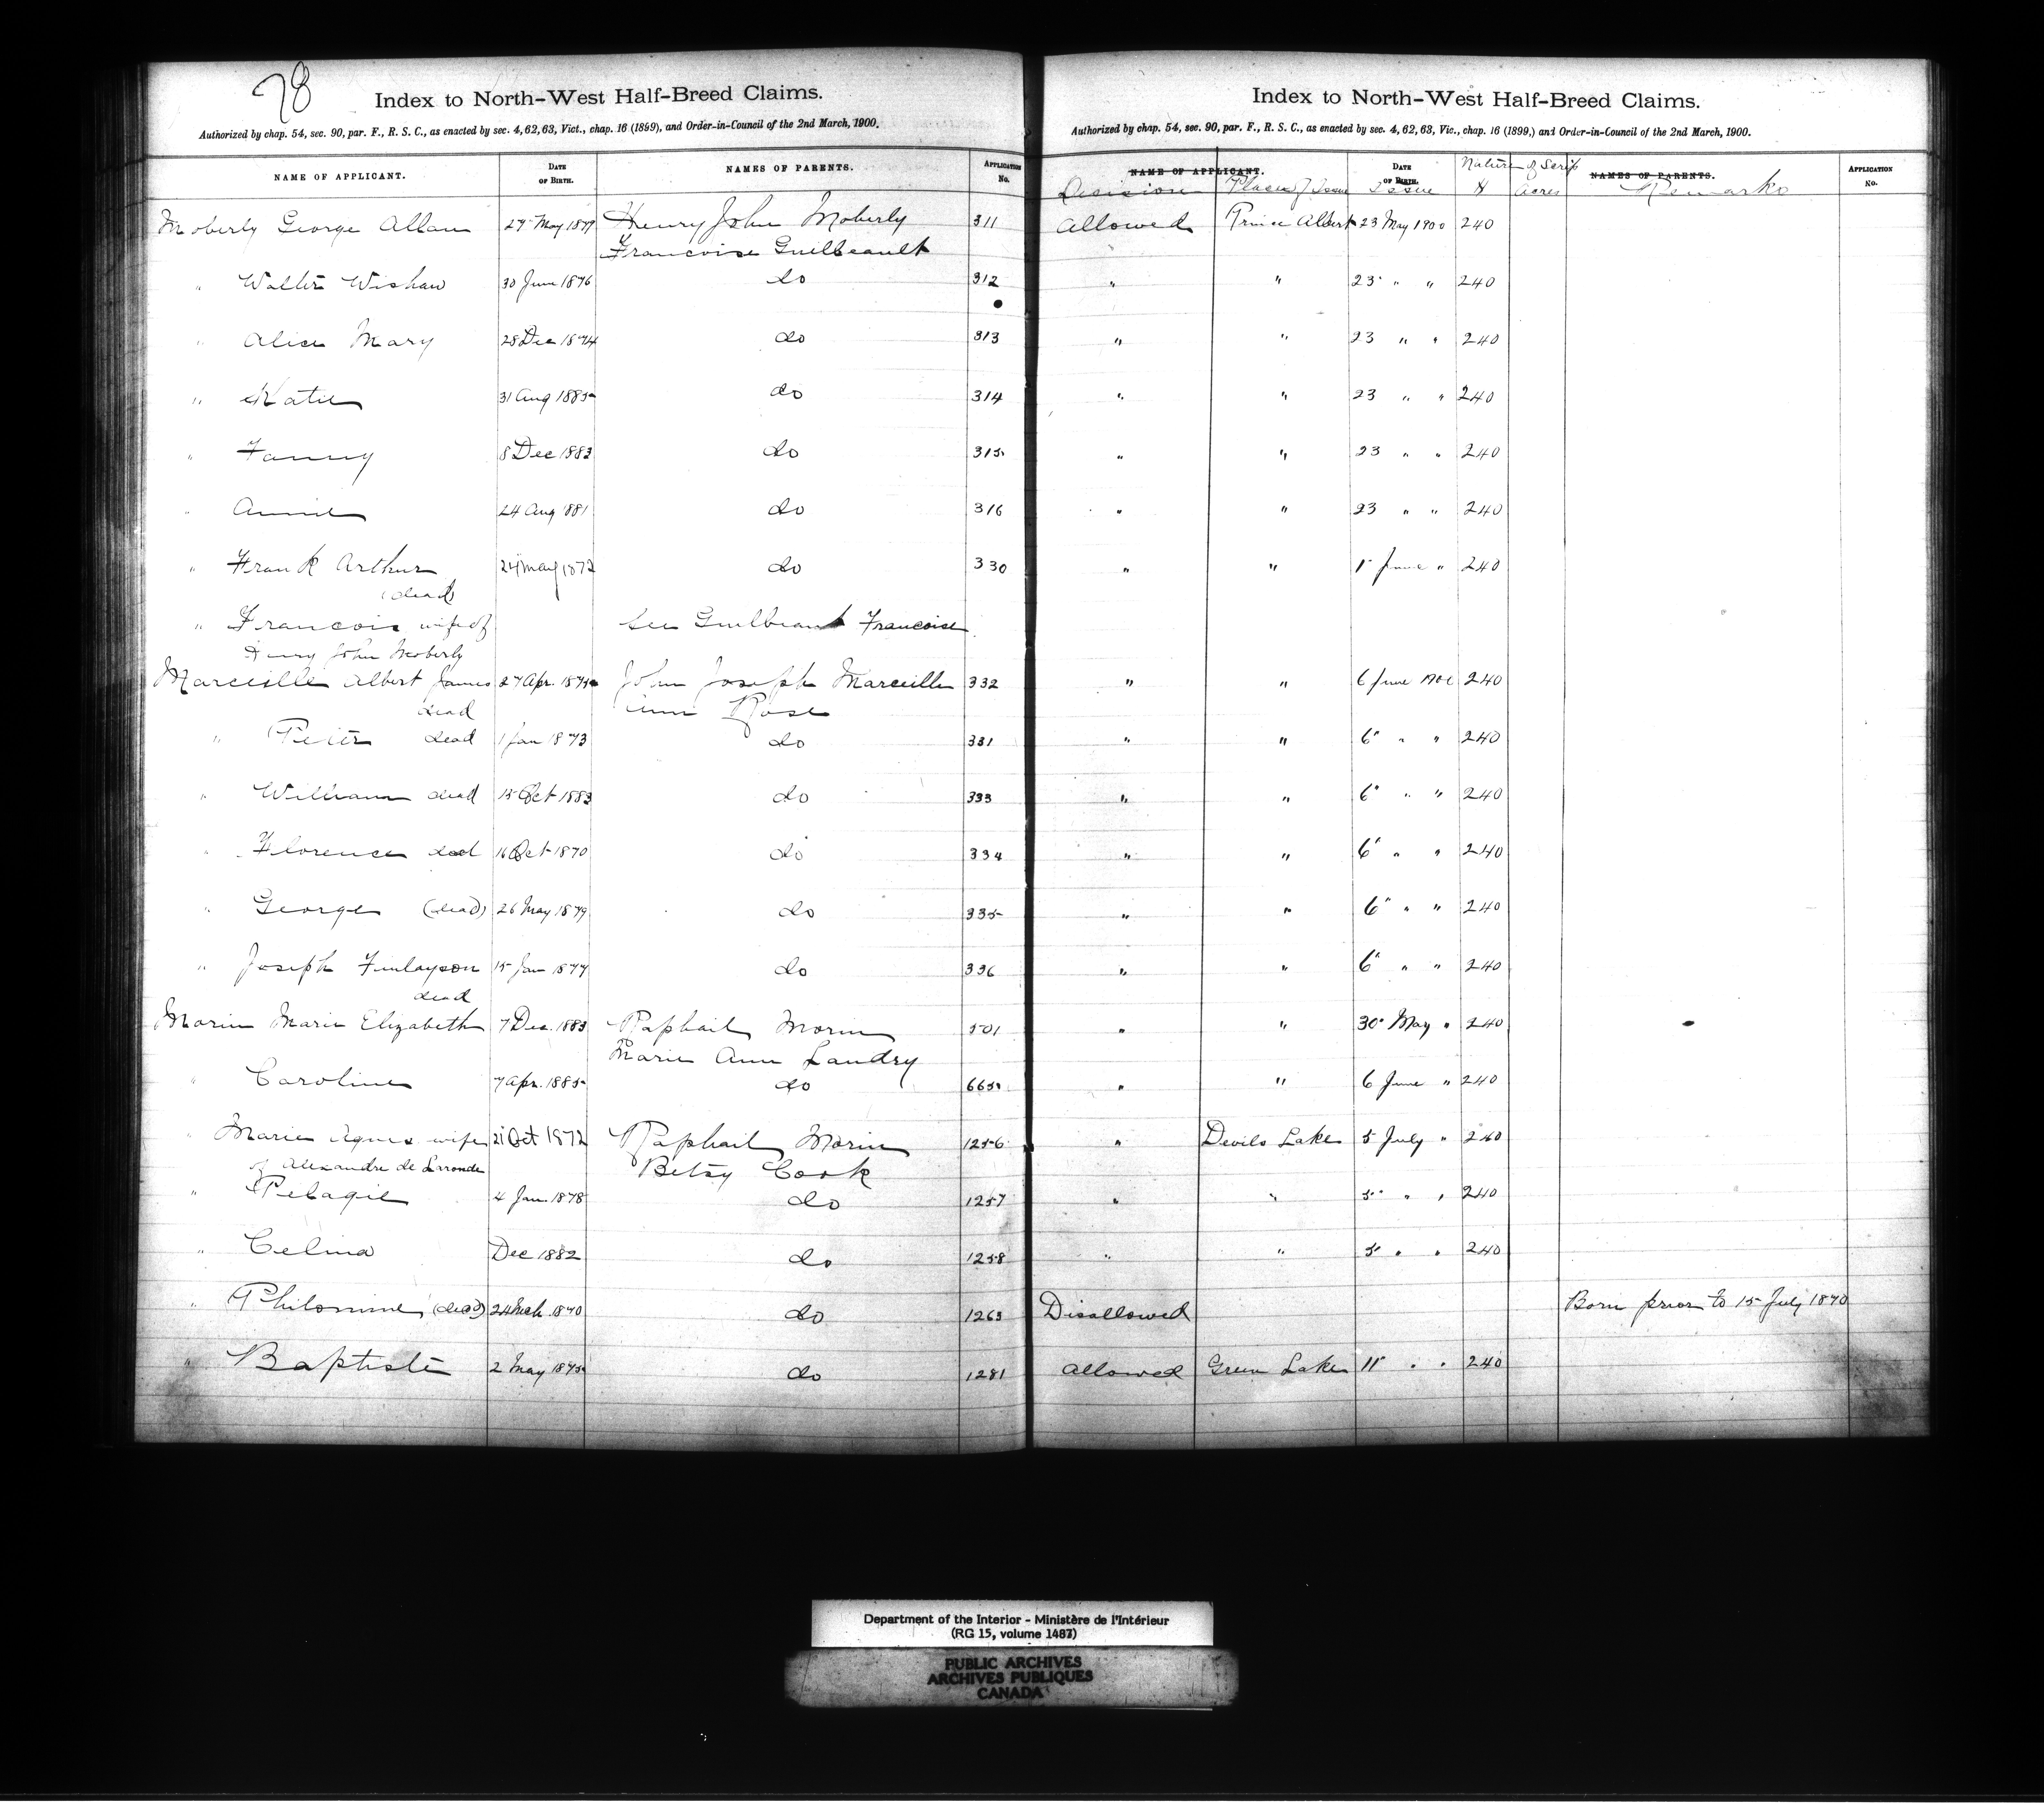 78
Index to North-West Half-Breed Claims.
Authorized by chap. 54, sec. 90, par. F., R. S. C., as enacted by sec. 4, 62, 63, Vict., chap. 16 (1899), and Order-in-Council of the 2nd March, 1900.
NAME OF APPLICANT. DATE OF BIRTH. NAMES OF PARENTS. APPLICATION No.
Index to North-West Half-Breed Claims.
Authorized by chap. 54, sec. 90, par. F., R. S. C., as enacted by sec. 4, 62, 63, Vic., chap. 16 (1899,) and Order-in-Council of the 2nd March, 1900.
NAME OF APPLICANT. DATE OF BIRTH. Nature of Scrip NAMES OF PARENTS. APPLICATION No.
Decision Place of Issue Issue $ Acres Remarks
Moberly George Allan 27 May 1879 Henry John Moberly 311 Allowed Prince Albert 23 May 1900 240
Francoise Guilbeault
" Walter Wishaw 30 June 1876 do 312 " " 23 " " 240
" Alice Mary 28 Dec 1874 do 313 " " 23 " " 240
" Katie 31 Aug 1885 do 314 " " 23 " " 240
" Fanny 8 Dec 1883 do 315 " " 23 " " 240
" Annie 24 Aug 1881 do 316 " " 23 " " 240
" Frank Arthur 24 May 1872 do 330 " " 1 June " 240
(dead)
" Francois wife of see Guilbeault Francoise
Henry John Moberly
Marceille Albert James 27 Apr. 1875 John Joseph Marceille 332 " " 6 June 1900 240
dead Ann Rose
" Peter dead 1 Jan 1873 do 331 " " 6 " " 240
" William dead 15 Oct 1883 do 333 " " 6 " " 240
" Florence dead 16 Oct 1870 do 334 " " 6 " " 240
" George (dead) 26 May 1879 do 335 " " 6 " " 240
" Joseph Finlayson 15 Jan 1877 do 336 " " 6 " " 240
dead
Morin Marie Elizabeth 7 Dec. 1883 Raphail Morin 501 " " 30 May " 240
Marie Ann Landry
" Caroline 7 Apr. 1885 do 665 " " 6 June " 240
" Marie Agnes wife 21 Oct 1872 Raphail Morin 1256 " Devils Lake 5 July " 240
of Alexandre de Laronde Betsy Cook
" Pelagie 4 Jan. 1878 do 1257 " " 5 " " 240
" Celina Dec 1882 do 1258 " " 5 " " 240
" Philomine (dead) 24 Mch. 1870 do 1263 Disallowed Born prior to 15 July 1870
" Baptiste 2 May 1875 do 1281 Allowed Green Lake 11 " " 240
Department of the Interior - Ministère de l'Intérieur
(RG 15, volume 1487)
PUBLIC ARCHIVES
ARCHIVES PUBLIQUES
CANADA